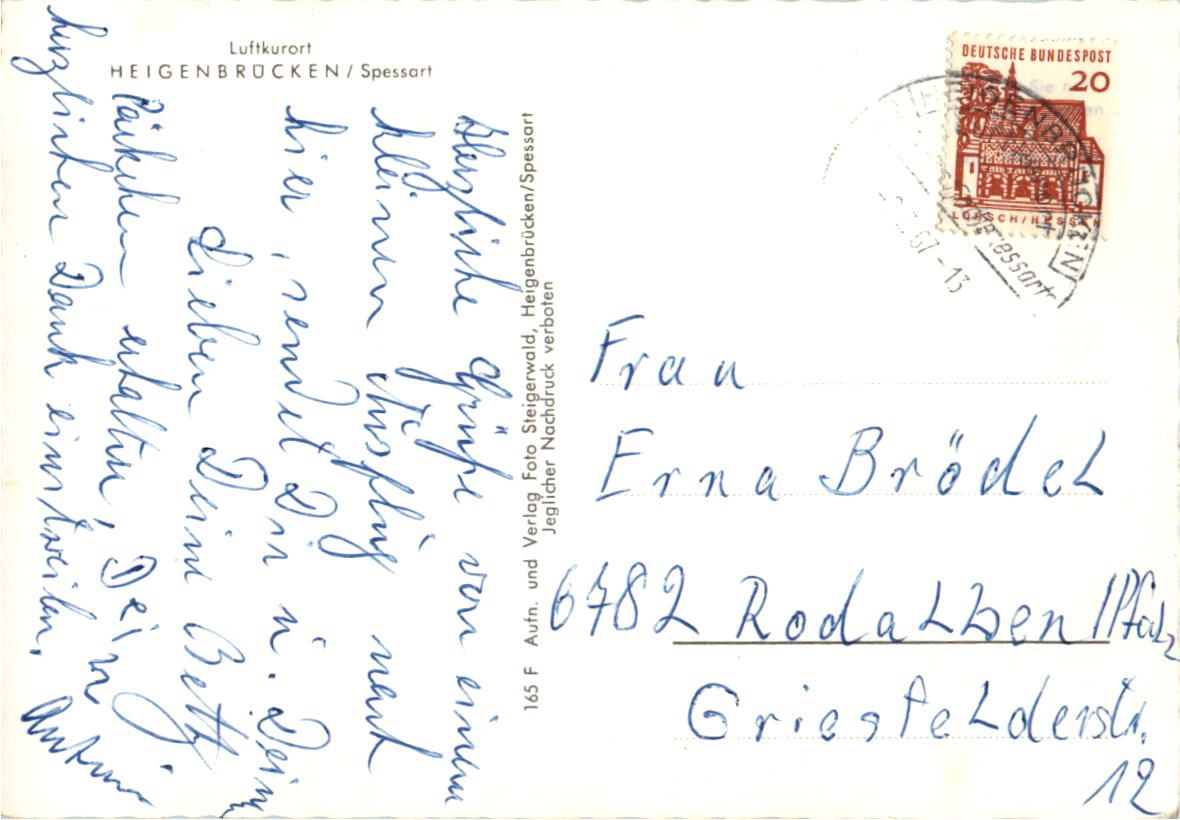 Luftkurort
HEIGENBRÜCKEN/Spessart
Herzliche Grüße von einem
kleinen Ausflug nach
hier, sendet Dir u. Dein
Lieben Deine Betty
Päckchen erhalten, Dein
herzlichen Dank einstweilen.
165 F Aufn. und Verlag Foto Steigerwald, Heigenbrücken/Spessart
Jeglicher Nachdruck verboten
DEUTSCHE BUNDESPOST
20
LORSCH/HESSEN
HEIGENBRÜCKEN
67-13
Frau
Erna Brödel
6782 Rodalben/Pfalz
Griesfelderstr.
12